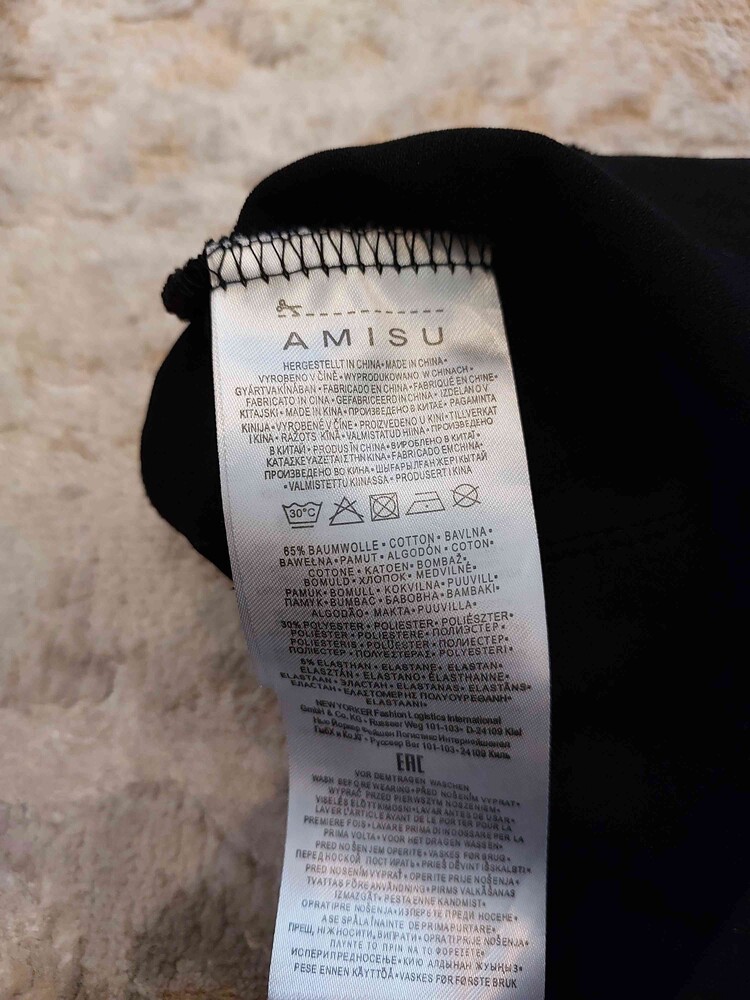 AMISU
HERGESTELLT IN CHINA•MADE IN CHINA•
VYROBENO V ČÍNĚ•WYPRODUKOWANO W CHINACH•
GYÁRTVA KÍNÁBAN•FABRICADO EN CHINA•FABRIQUÉ EN CHINE•
FABRICATO IN CINA•GEFABRICEERD IN CHINA•IZDELANO V
KITAJSKI•MADE IN KINA•ПРОИЗВЕДЕНО В КИТАЕ•PAGAMINTA
KINIJA•VYROBENÉ V ČÍNE•PROIZVEDENO U KINI•TILLVERKAT
I KINA•RAŽOTS ĶĪNĀ•VALMISTATUD HIINA•ПРОИЗВЕДЕНО
В КИТАЙ•PRODUS ÎN CHINA•ВИРОБЛЕНО В КИТАЇ•
ΚΑΤΑΣΚΕΥΑΖΕΤΑΙ ΣΤΗΝ ΚΙΝΑ•FABRICADO EM CHINA•
ПРОИЗВЕДЕНО ВО КИНА•ШЫҒАРЫЛҒАН ЖЕРІ ҚЫТАЙ
•VALMISTETTU KIINASSA•PRODUSERT I KINA
30°C
65% BAUMWOLLE•COTTON•BAVLNA•
BAWEŁNA•PAMUT•ALGODÓN•COTON•
COTONE•KATOEN•BOMBAŽ•
BOMULD•ХЛОПОК•MEDVILNĖ•
PAMUK•BOMULL•KOKVILNA•PUUVILL•
ПАМУК•BUMBAC•БАВОВНА•ΒΑΜΒΑΚΙ•
ALGODÃO•МАКТА•PUUVILLA•
30% POLYESTER•POLIESTER•POLIÉSZTER•
POLIÉSTER•POLIESTERE•ПОЛИЭСТЕР•
POLIESTERIS•POLÜESTER•ПОЛИЕСТЕР•
ПОЛІЕСТЕР•ΠΟΛΥΕΣΤΕΡΑΣ•POLYESTERI•
5% ELASTHAN•ELASTANE•ELASTAN•
ELASZTÁN•ELASTANO•ÉLASTHANNE•
ELASTAAN•ЭЛАСТАН•ELASTANAS•ELASTĀNS•
ЕЛАСТАН•ΕΛΑΣΤΟΜΕΡΗΣ ΠΟΛΥΟΥΡΕΘΑΝΗ•
ELASTAANI•
NEW YORKER Fashion Logistics International
GmbH & Co. KG•Russeer Weg 101-103•D-24109 Kiel
Нью Йоркер Фэйшн Логистикс Интернейшенал
ГмбХ и Ко.КГ•Руссеер Вег 101-103•24109 Киль
EAC
VOR DEM TRAGEN WASCHEN
WASH BEFORE WEARING•PŘED NOŠENÍM VYPRAT•
WYPRAĆ PRZED PIERWSZYM NOSZENIEM•
VISELÉS ELŐTT KIMOSNI•LAVAR ANTES DE USAR•
LAVER L'ARTICLE AVANT DE LE PORTER POUR LA
PREMIERE FOIS•LAVARE PRIMA DI INDOSSARE PER LA
PRIMA VOLTA•VOOR HET DRAGEN WASSEN•
PRED NOŠENJEM OPERITE•VASKES FØR BRUG•
ПЕРЕД НОСКОЙ ПОСТИРАТЬ•PRIEŠ DĖVINT IŠSKALBTI•
PRED NOSENÍM VYPRAŤ•OPERITE PRIJE NOŠENJA•
TVÄTTAS FÖRE ANVÄNDNING•PIRMS VALKĀŠANAS
IZMAZGĀT•PESTA ENNE KANDMIST•
OPRATI PRE NOŠENJA•ИЗПЕРЕТЕ ПРЕДИ НОСЕНЕ•
A SE SPĂLA ÎNAINTE DE PRIMA PURTARE•
ПЕРЕД, НІЖ НОСИТИ, ВИПРАТИ•OPRATI PRIJE NOŠENJA•
ΠΛΥΝΤΕ ΤΟ ΠΡΙΝ ΝΑ ΤΟ ΦΟΡΕΣΕΤΕ•
ИСПЕРИ ПРЕД НОСЕЊЕ•КИЮ АЛДЫНАН ЖУЫҢЫЗ•
PESE ENNEN KÄYTTÖÄ•VASKES FØR FØRSTE BRUK